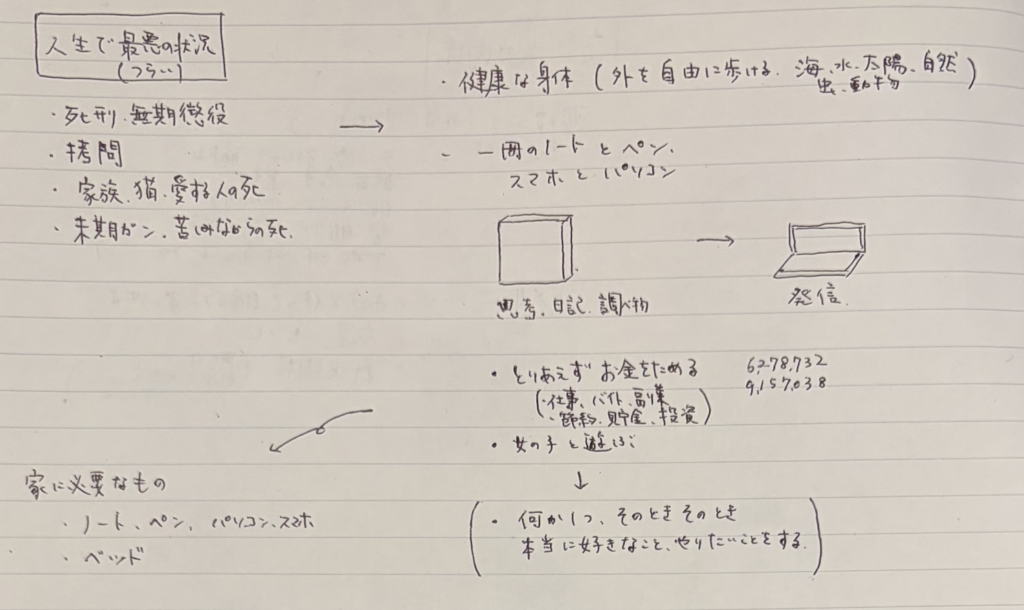 人生で最悪の状況
(つらい)
・死刑、無期懲役
・拷問
・家族、猫、愛する人の死
・末期ガン、苦しみながらの死、
→
・健康な身体 (外を自由に歩ける、海、水、太陽、自然
虫、動物)
・一冊のノートとペン、
スマホとパソコン
→
思考、日記、調べ物
発信、
・とりあえずお金をためる
(・仕事、バイト、副業
・節約、貯金、投資)
6,278,732
9,157,038
・女の子と遊ぶ
↓
(・何か1つ、そのときそのとき
本当に好きなこと、やりたいことをする)
家に必要なもの
・ノート、ペン、パソコン、スマホ
・ベッド